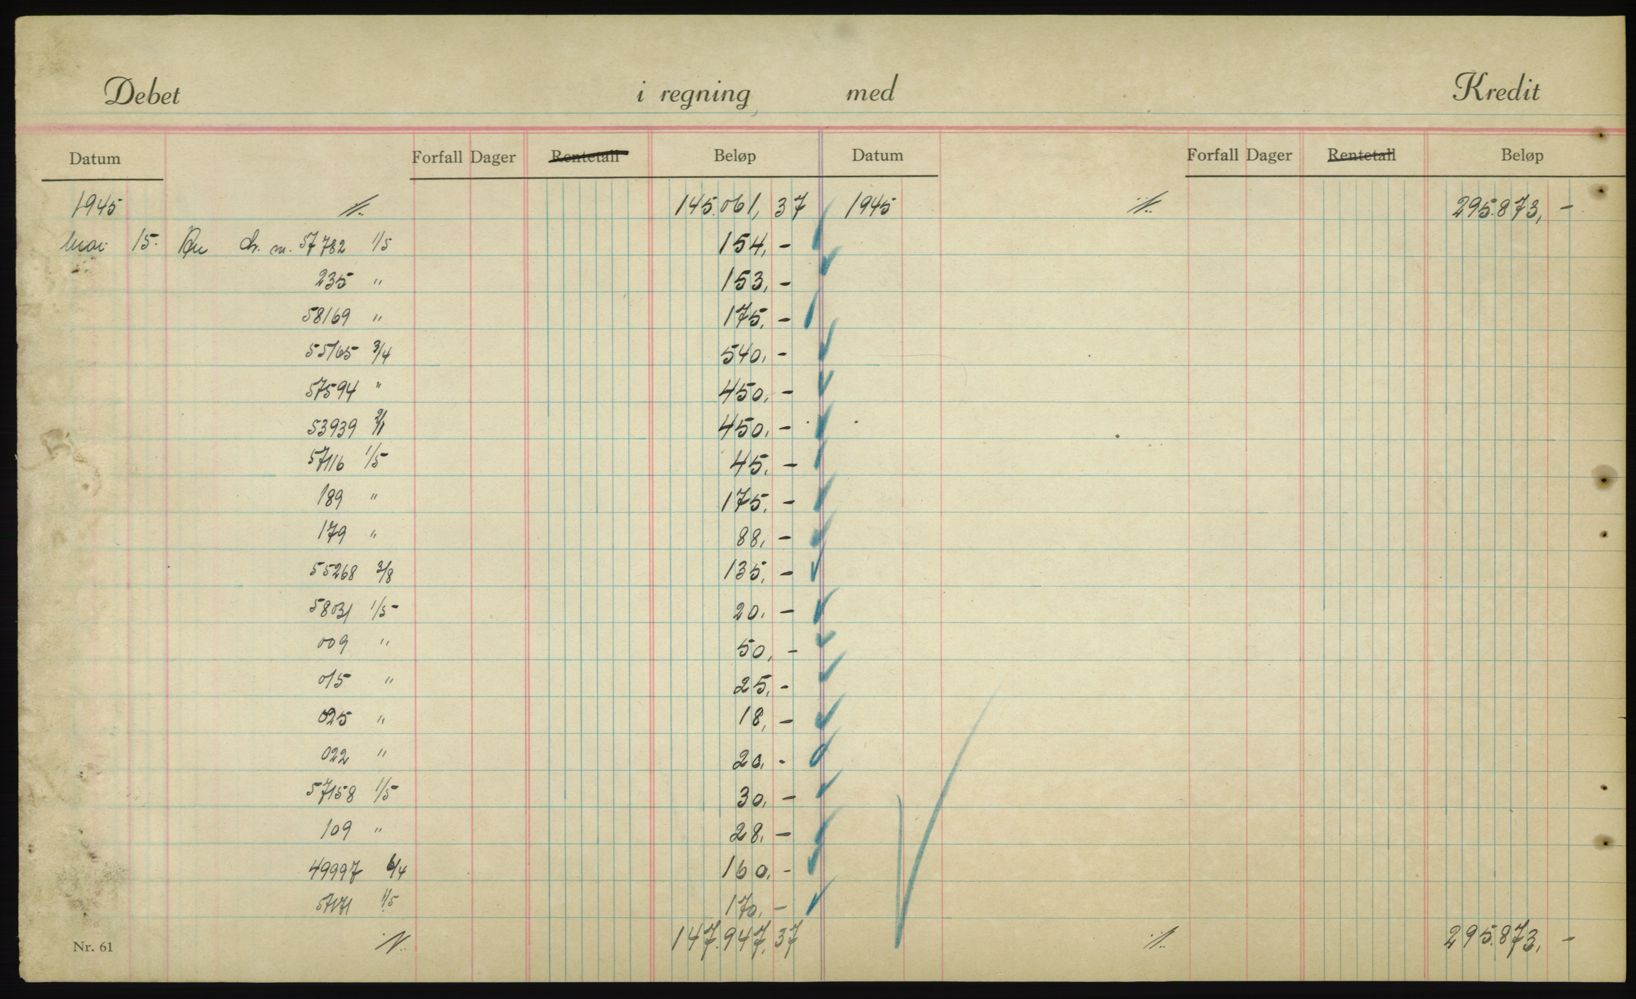 Debet i regning med Kredit
Datum Forfall Dager Rentetall Beløp Datum Forfall Dager Rentetall Beløp
1945 145.061,37 1945 295.873,-
Mai 15. 57782 1/5 154,-
235 " 153,-
58169 " 175,-
55165 3/4 540,-
57594 " 450,-
53939 450,-
57116 1/5 45,-
189 " 175,-
179 " 88,-
55268 3/8 135,-
58031 1/5 20,-
009 " 50,-
015 " 25,-
025 " 18,-
022 " 20,-
57158 1/5 30,-
109 " 28,-
49997 6/4 160,-
57171 1/5 170,-
Nr. 61 147.947,37 295.873,-